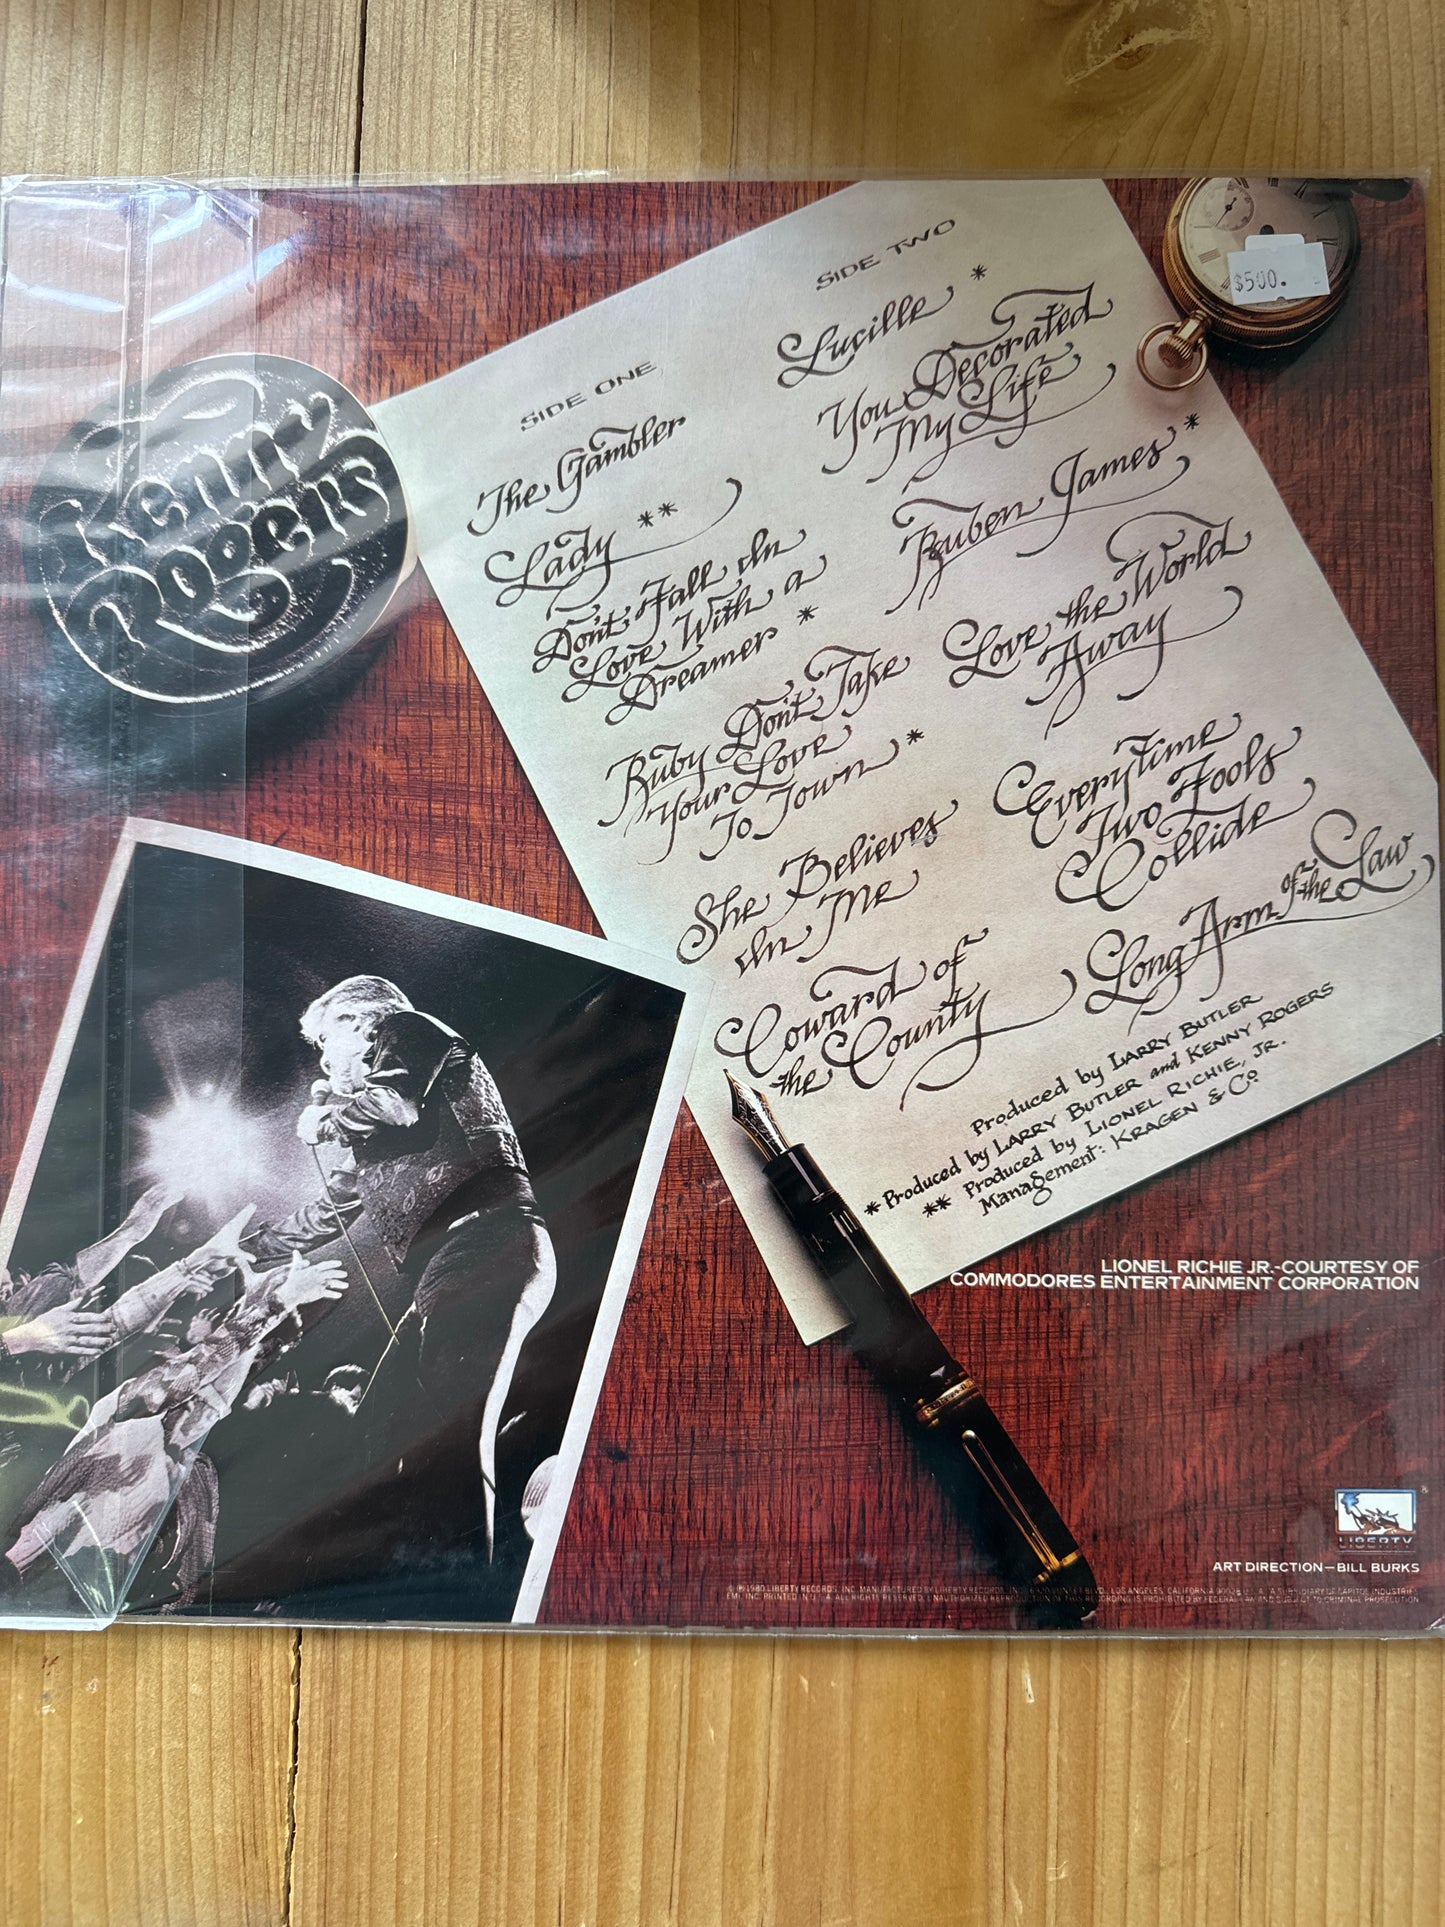 Kenny
Rogers
SIDE ONE
The Gambler
Lady **
Don't Fall In
Love With a
Dreamer *
Ruby Don't Take
Your Love
To Town *
She Believes
In Me
Coward of
the County
SIDE TWO
Lucille *
You Decorated
My Life
Ruben James *
Love the World
Away
Everytime
Two Fools
Collide
Long Arm of the Law
Produced by LARRY BUTLER
* Produced by LARRY BUTLER and KENNY ROGERS
** Produced by LIONEL RICHIE, JR.
Management: KRAGEN & Co
$500.
LIONEL RICHIE JR.-COURTESY OF
COMMODORES ENTERTAINMENT CORPORATION
LIBERTY
®
ART DIRECTION—BILL BURKS
© ℗ 1980 LIBERTY RECORDS, INC. MANUFACTURED BY LIBERTY RECORDS, INC. SUNSET BLVD., LOS ANGELES, CALIFORNIA 90028 U.S.A. A SUBSIDIARY OF CAPITOL INDUSTRIES-
EMI, INC. PRINTED IN U.S.A. ALL RIGHTS RESERVED. UNAUTHORIZED REPRODUCTION OF THIS RECORDING IS PROHIBITED BY FEDERAL LAW AND SUBJECT TO CRIMINAL PROSECUTION